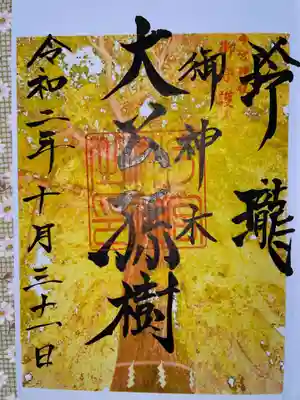 玲瓏
御神木
大公孫樹
令和二年十月三十一日